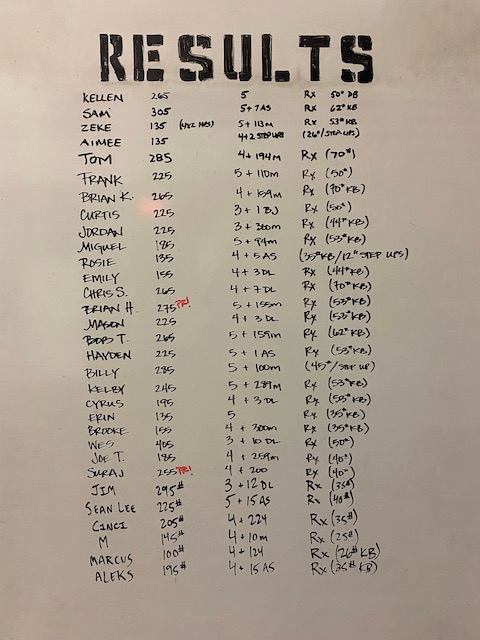 RESULTS
KELLEN 265 5 Rx 50# DB
SAM 305 5+7AS Rx 62# KB
ZEKE 135 5+113m Rx 53# KB
AIMEE 135 4+2 STEP UPS (26#/STEP UPS)
TOM 285 4+194m Rx (70#)
FRANK 225 5+110m Rx (50#)
BRIAN K. 265 4+159m Rx (70# KB)
CURTIS 225 3+1BJ Rx (50#)
JORDAN 225 4+300m Rx (44# KB)
MIGUEL 185 5+94m Rx (53# KB)
ROSIE 135 4+5AS (35# KB/12" STEP UPS)
EMILY 155 4+3DL Rx (44# KB)
CHRIS S. 265 4+7DL Rx (70# KB)
BRIAN H. 275 PR! 5+155m Rx (53# KB)
MASON 225 4+3DL Rx (53# KB)
BOBS T. 265 5+159m Rx (62# KB)
HAYDEN 225 5+1AS Rx (53# KB)
BILLY 285 5+100m (45#/STEP UP)
KELBY 245 5+289m Rx (53# KB)
CYRUS 195 4+3DL Rx (55# KB)
ERIN 135 5 Rx (35# KB)
BROOKE 155 4+300m Rx (35# KB)
WES 405 3+10DL Rx (50#)
JOE T. 185 4+259m Rx (40#)
SURAJ 255 PR! 4+200 Rx (40#)
JIM 295# 3+12DL Rx (35#)
SEAN LEE 225# 5+15AS Rx (40#)
CINCI 205# 4+224 Rx (35#)
M 145# 4+10m Rx (25#)
MARCUS 100# 4+124 Rx (26# KB)
ALEKS 195# 4+15AS Rx (35# KB)